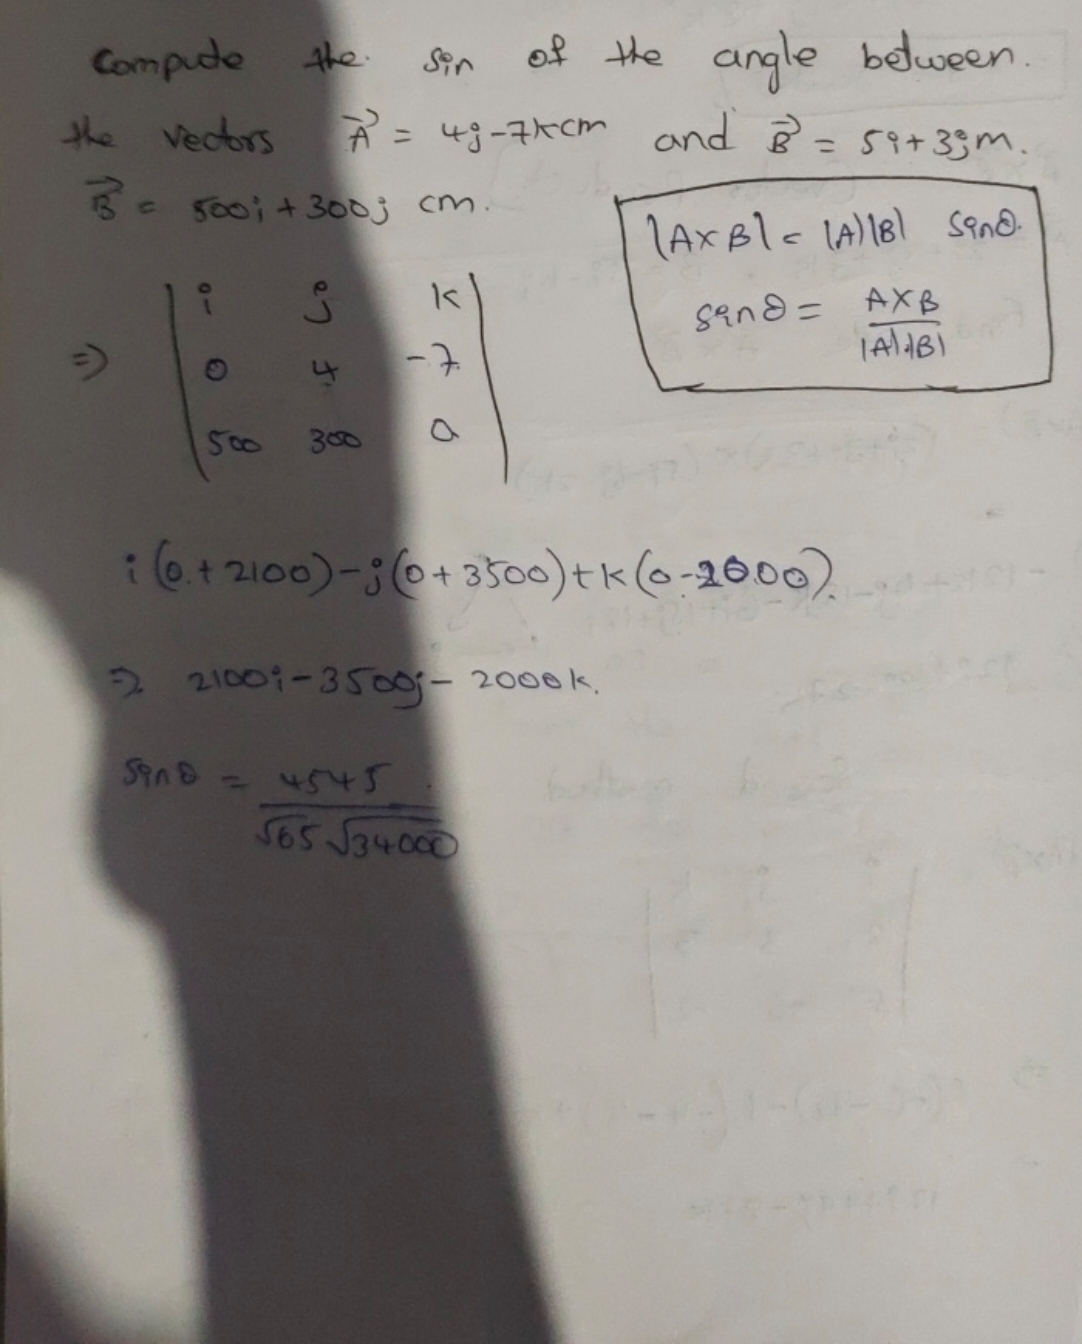 Compute the sin of the angle between.
the vectors A⃗ = 4j-7kcm and B⃗ = 5i+3jm.
B⃗ = 500i+300j cm.
|A×B| = |A||B| sinθ.
sinθ = A×B / |A|.|B|
⇒ | i j k |
| 0 4 -7 |
| 500 300 0 |
i(0+2100)-j(0+3500)+k(0-2000).
⇒ 2100i-3500j-2000k.
sinθ = 4545 / √65 √34000